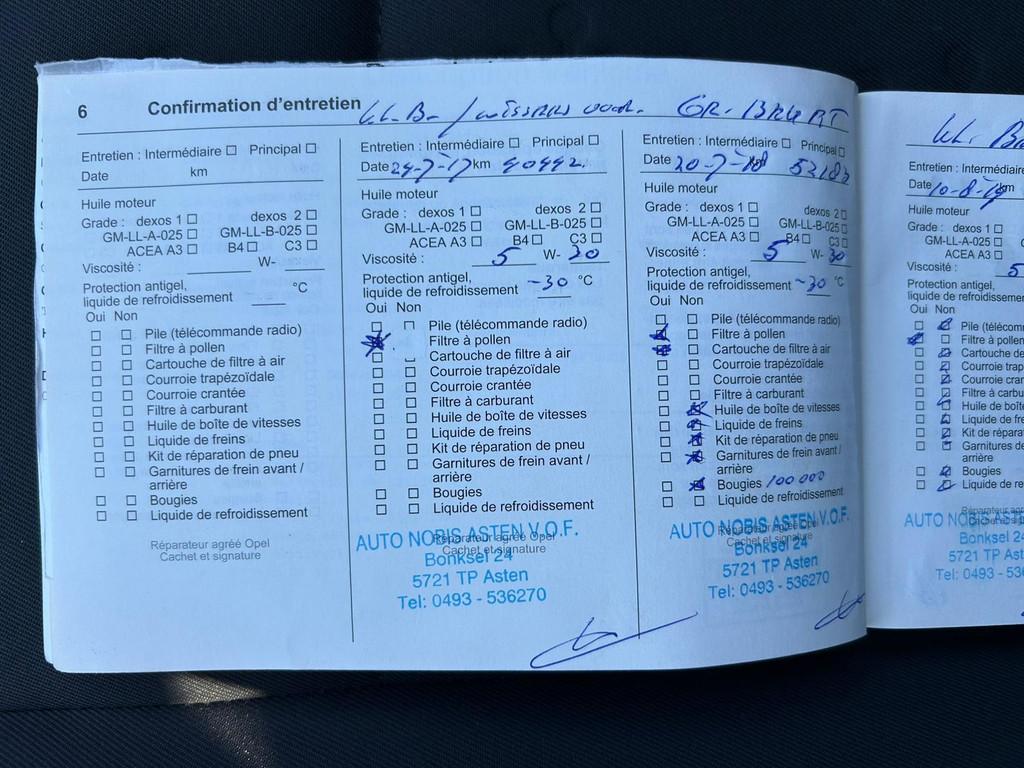 6 Confirmation d'entretien
Entretien : Intermédiaire Principal
Date km
Huile moteur
Grade : dexos 1 dexos 2
GM-LL-A-025 GM-LL-B-025
ACEA A3 B4 C3
Viscosité : W-
Protection antigel,
liquide de refroidissement °C
Oui Non
Pile (télécommande radio)
Filtre à pollen
Cartouche de filtre à air
Courroie trapézoïdale
Courroie crantée
Filtre à carburant
Huile de boîte de vitesses
Liquide de freins
Kit de réparation de pneu
Garnitures de frein avant /
arrière
Bougies
Liquide de refroidissement
Réparateur agréé Opel
Cachet et signature
Entretien : Intermédiaire Principal
Date 24-7-17 km 40442.
Huile moteur
Grade : dexos 1 dexos 2
GM-LL-A-025 GM-LL-B-025
ACEA A3 B4 C3
Viscosité : 5 W- 30
Protection antigel,
liquide de refroidissement -30 °C
Oui Non
Pile (télécommande radio)
Filtre à pollen
Cartouche de filtre à air
Courroie trapézoïdale
Courroie crantée
Filtre à carburant
Huile de boîte de vitesses
Liquide de freins
Kit de réparation de pneu
Garnitures de frein avant /
arrière
Bougies
Liquide de refroidissement
Réparateur agréé Opel
Cachet et signature
AUTO NOBIS ASTEN V.O.F.
Bonksel 24
5721 TP Asten
Tel: 0493 - 536270
GR. BEURT
Entretien : Intermédiaire Principal
Date 20-7-18 km
Huile moteur
Grade : dexos 1 dexos 2
GM-LL-A-025 GM-LL-B-025
ACEA A3 B4 C3
Viscosité : 5 W- 30
Protection antigel,
liquide de refroidissement -30 °C
Oui Non
Pile (télécommande radio)
Filtre à pollen
Cartouche de filtre à air
Courroie trapézoïdale
Courroie crantée
Filtre à carburant
Huile de boîte de vitesses
Liquide de freins
Kit de réparation de pneu
Garnitures de frein avant /
arrière
Bougies 100 000
Liquide de refroidissement
Réparateur agréé Opel
Cachet et signature
AUTO NOBIS ASTEN V.O.F.
Bonksel 24
5721 TP Asten
Tel: 0493 - 536270
Entretien : Intermédiaire
Date 10-8-19 km
Huile moteur
Grade : dexos 1
GM-LL-A-025
ACEA A3
Viscosité : 5
Protection antigel,
liquide de refroidissemen
Oui Non
Pile (télécomm
Filtre à pollen
Cartouche de
Courroie trap
Courroie cran
Filtre à carbu
Huile de boît
Liquide de fre
Kit de répara
Garnitures de
arrière
Bougies
Liquide de re
AUTO NOBIS AST
Bonksel 24
5721 TP Aste
Tel: 0493 - 536